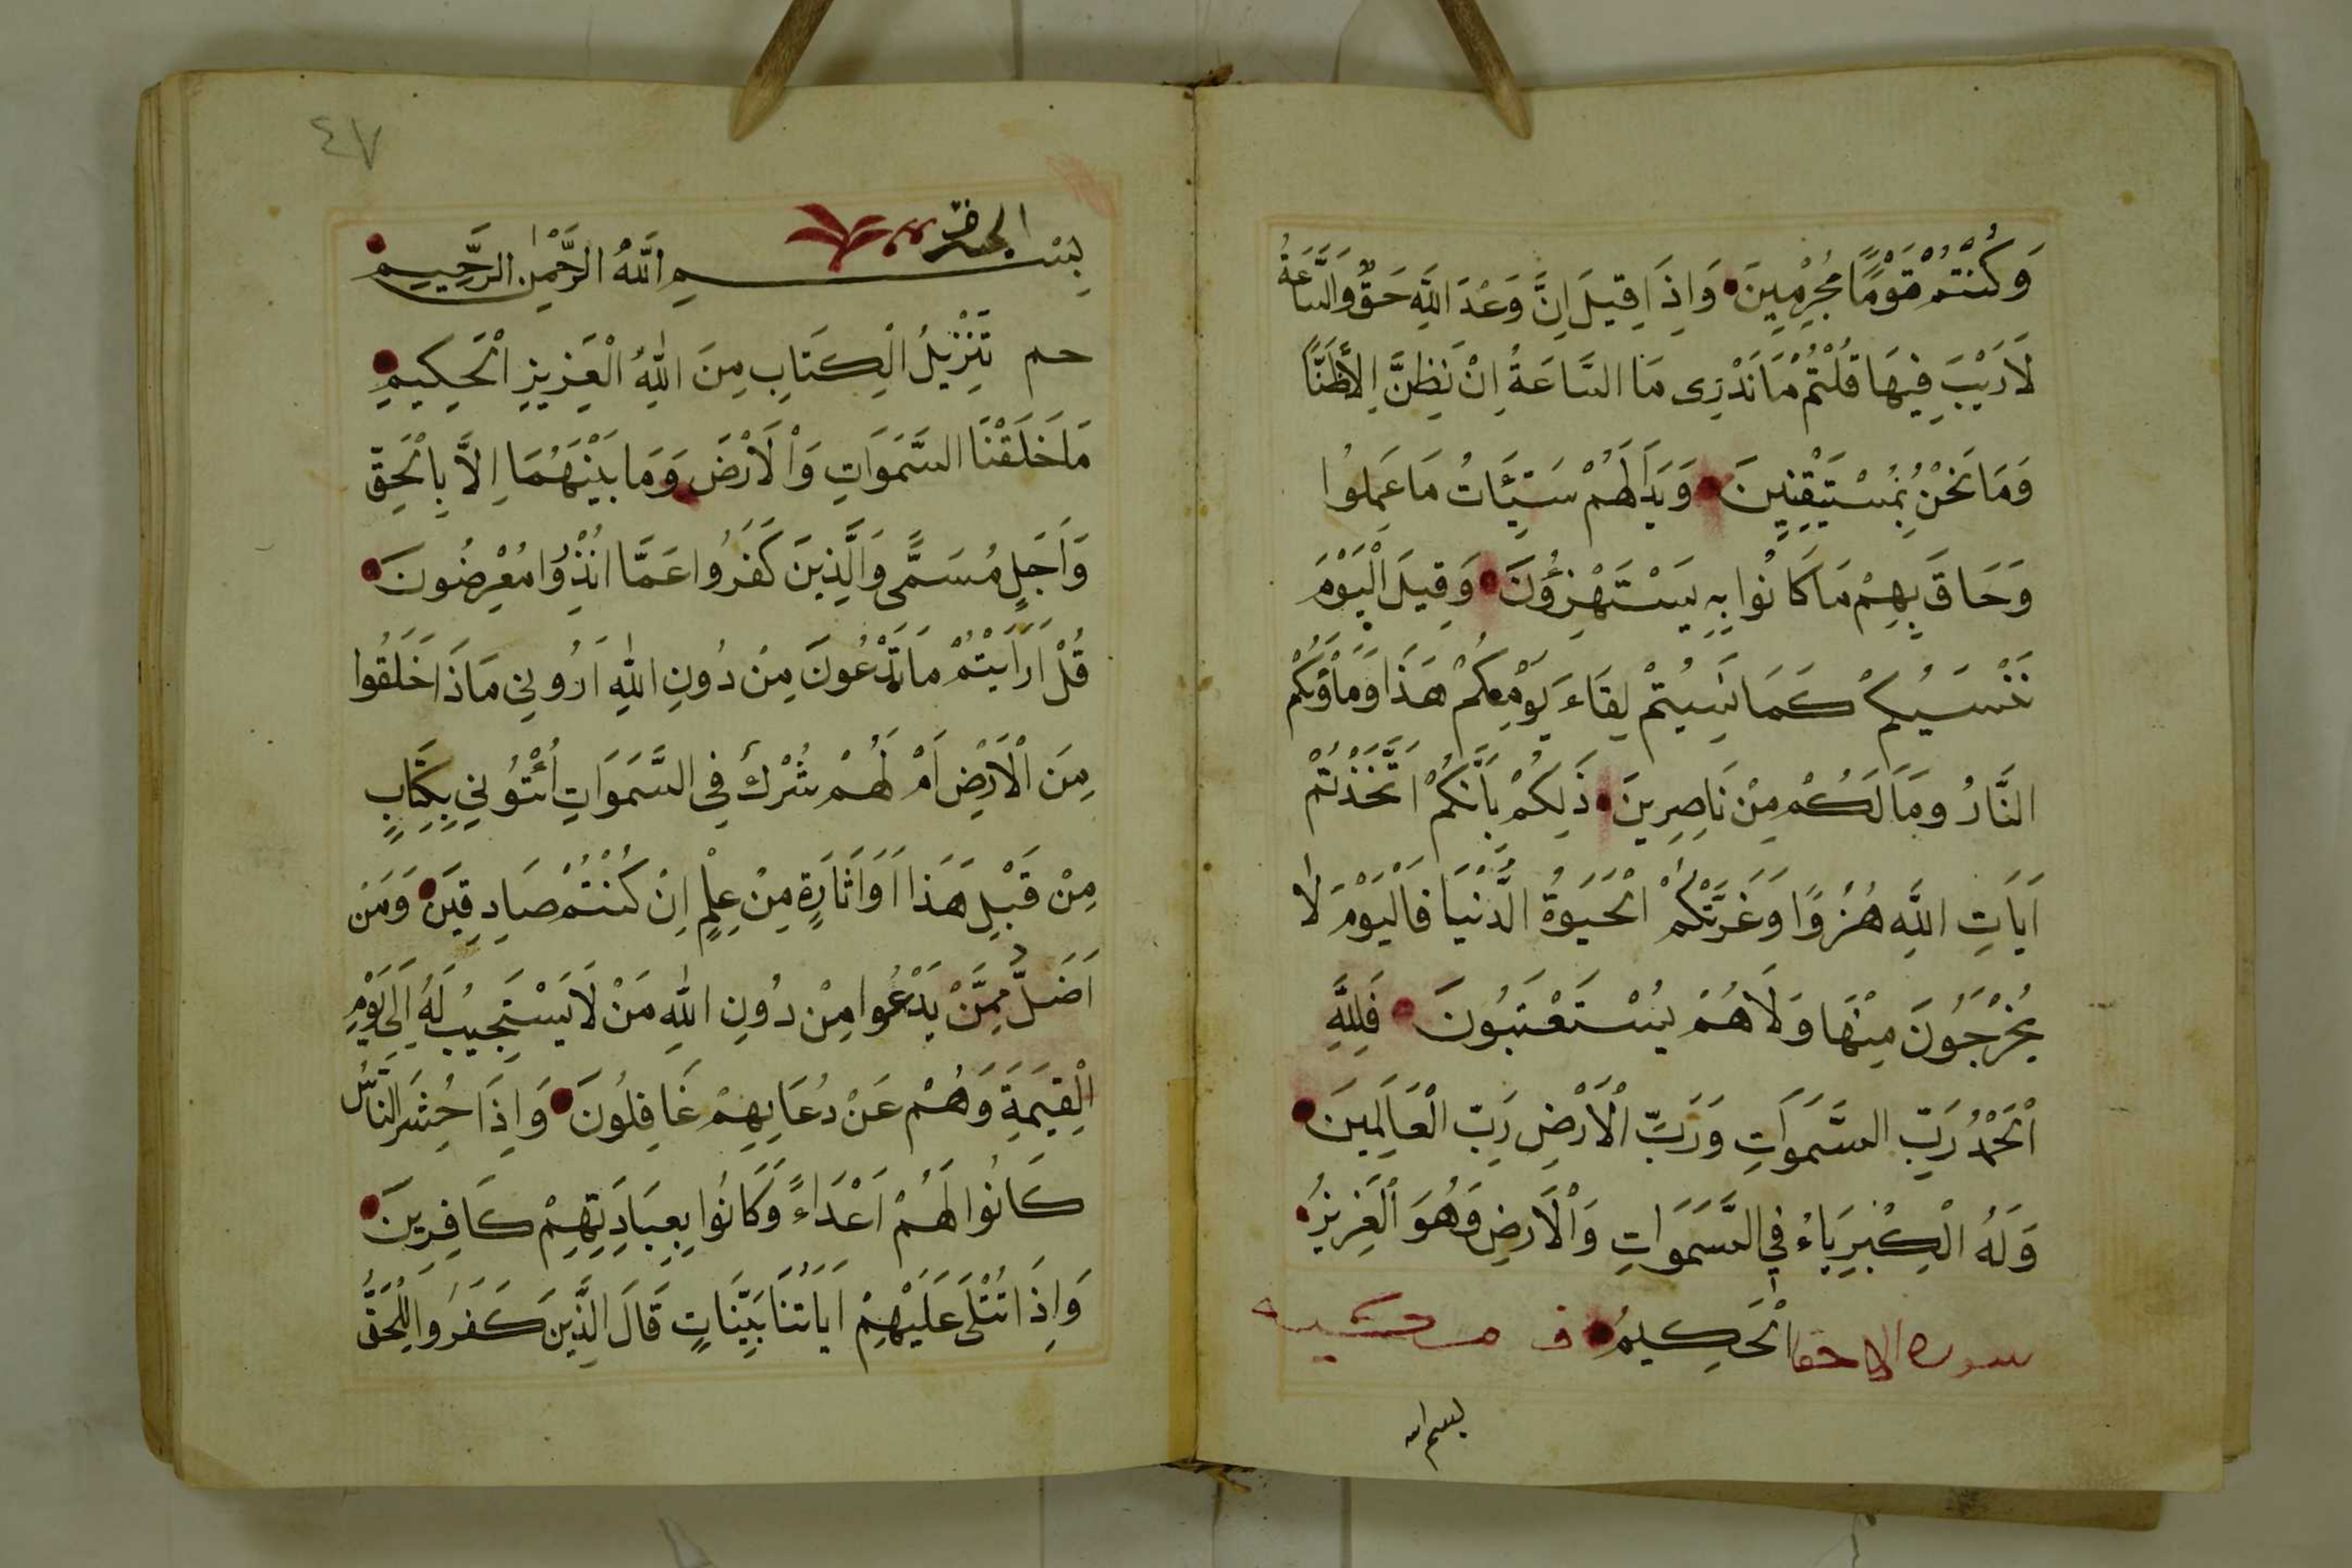 وَكُنْتُمْ قَوْمًا مُجْرِمِينَ وَاِذَا قِيلَ اِنَّ وَعْدَ اللَّهِ حَقٌّ وَالسَّاعَةُ
لَارَيْبَ فِيهَا قُلْتُمْ مَانَدْرِى مَا السَّاعَةُ اِنْ نَظُنُّ اِلَّا ظَنًّا
وَمَا نَحْنُ بِمُسْتَيْقِنِينَ وَبَدَا لَهُمْ سَيِّئَاتُ مَا عَمِلُوا
وَحَاقَ بِهِمْ مَا كَانُوا بِهِ يَسْتَهْزِؤُنَ وَقِيلَ الْيَوْمَ
نَنْسَيكُمْ كَمَا نَسِيتُمْ لِقَاءَ يَوْمِكُمْ هَذَا وَمَأْوَيكُمْ
النَّارُ وَمَا لَكُمْ مِنْ نَاصِرِينَ ذَلِكُمْ بِاَنَّكُمْ اتَّخَذْتُمْ
اَيَاتِ اللَّهِ هُزُوًا وَغَرَّتْكُمْ الْحَيَوةُ الدُّنْيَا فَالْيَوْمَ لَا
يُخْرَجُونَ مِنْهَا وَلَاهُمْ يُسْتَعْتَبُونَ فَلِلَّهِ
الْحَمْدُ رَبِّ السَّمَوَاتِ وَرَبِّ الْاَرْضِ رَبِّ الْعَالَمِينَ
وَلَهُ الْكِبْرِيَاءُ فِي السَّمَوَاتِ وَالْاَرْضِ وَهُوَ الْعَزِيزُ
سورة الاحقا الْحَكِيمُ ف
بسم الله
٤٧
بِسْمِ اللَّهِ الرَّحْمٰنِ الرَّحِيمِ
حم تَنْزِيلُ الْكِتَابِ مِنَ اللّٰهِ الْعَزِيزِ الْحَكِيمِ
مَاخَلَقْنَا السَّمَوَاتِ وَالْاَرْضَ وَمَا بَيْنَهُمَا اِلَّا بِالْحَقِّ
وَاَجَلٍ مُسَمًّى وَالَّذِينَ كَفَرُوا عَمَّا اُنْذِرُوا مُعْرِضُونَ
قُلْ اَرَاَيْتُمْ مَا تَدْعُونَ مِنْ دُونِ اللّٰهِ اَرُونِي مَاذَا خَلَقُوا
مِنَ الْاَرْضِ اَمْ لَهُمْ شِرْكٌ فِي السَّمَوَاتِ اُئْتُونِي بِكِتَابٍ
مِنْ قَبْلِ هَذَا اَوْ اَثَارَةٍ مِنْ عِلْمٍ اِنْ كُنْتُمْ صَادِقِينَ وَمَنْ
اَضَلُّ مِمَّنْ يَدْعُوا مِنْ دُونِ اللّٰهِ مَنْ لَا يَسْتَجِيبُ لَهُ اِلَى يَوْمِ
الْقِيَمَةِ وَهُمْ عَنْ دُعَايِهِمْ غَافِلُونَ وَاِذَا حُشِرَ النَّاسُ
كَانُوا لَهُمْ اَعْدَاءً وَكَانُوا بِعِبَادَتِهِمْ كَافِرِينَ
وَاِذَا تُتْلَى عَلَيْهِمْ اَيَاتُنَا بَيِّنَاتٍ قَالَ الَّذِينَ كَفَرُوا لِلْحَقِّ